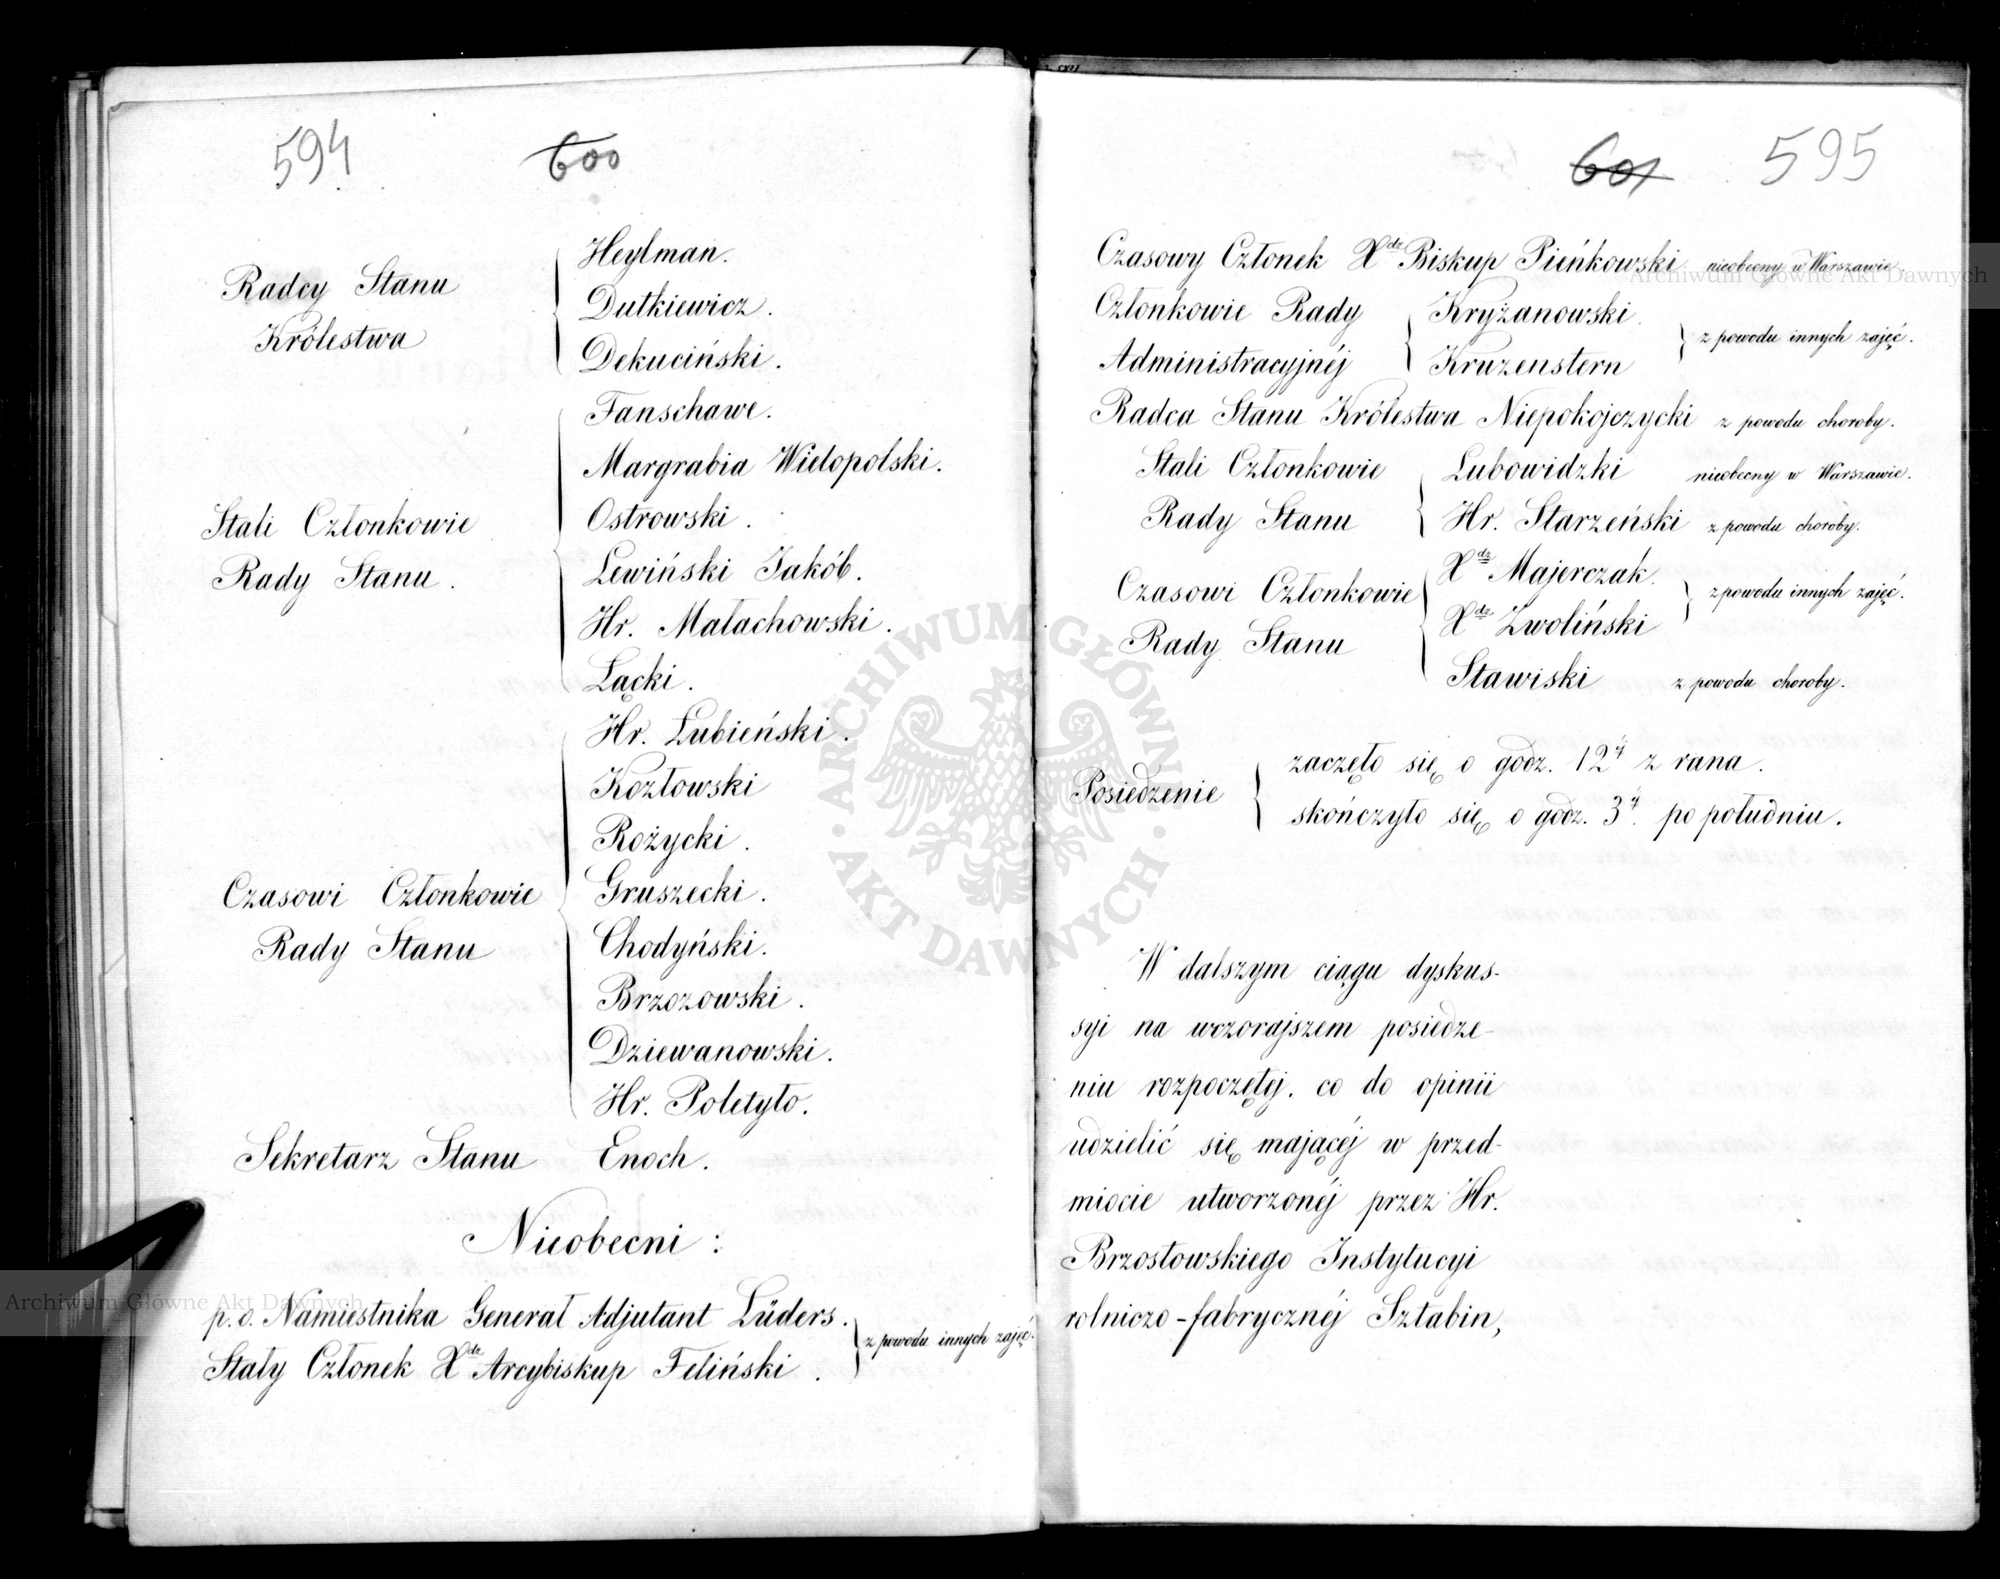 594
600
Radcy Stanu
Królestwa
Heylman.
Dutkiewicz.
Dekuciński.
Stali Członkowie
Rady Stanu.
Fanschawe.
Margrabia Wielopolski.
Ostrowski.
Lewiński Jakób.
Hr. Małachowski.
Łącki.
Czasowi Członkowie
Rady Stanu
Hr. Łubieński.
Kozłowski
Rożycki.
Gruszecki.
Chodyński.
Brzozowski.
Dziewanowski.
Hr. Poletyło.
Sekretarz Stanu Enoch.
Nieobecni:
p.o. Namiestnika Generał Adjutant Lüders.
Stały Członek Xdz Arcybiskup Feliński.
z powodu innych zajęć.
601
595
Czasowy Członek Xdz Biskup Pieńkowski nieobecny w Warszawie.
Członkowie Rady
Administracyjnéj
Kryżanowski.
Kruzenstern
z powodu innych zajęć.
Radca Stanu Królestwa Niepokojczycki z powodu choroby.
Stali Członkowie
Rady Stanu
Lubowidzki nieobecny w Warszawie.
Hr. Starzeński z powodu choroby.
Czasowi Członkowie
Rady Stanu
Xdz Majerczak.
Xdz Zwoliński
z powodu innych zajęć.
Stawiski z powodu choroby.
Posiedzenie
zaczęło się o godz. 12éj z rana.
skończyło się o godz. 3éj po południu.
W dalszym ciągu dyskus-
syi na wczorajszem posiedze-
niu rozpoczętéj, co do opinii
udzielić się mającéj w przed-
miocie utworzonéj przez Hr.
Brzostowskiego Instytucyi
rolniczo-fabrycznéj Sztabin,
ARCHIWUM GŁÓWNE
AKT DAWNYCH
Archiwum Główne Akt Dawnych
Archiwum Główne Akt Dawnych